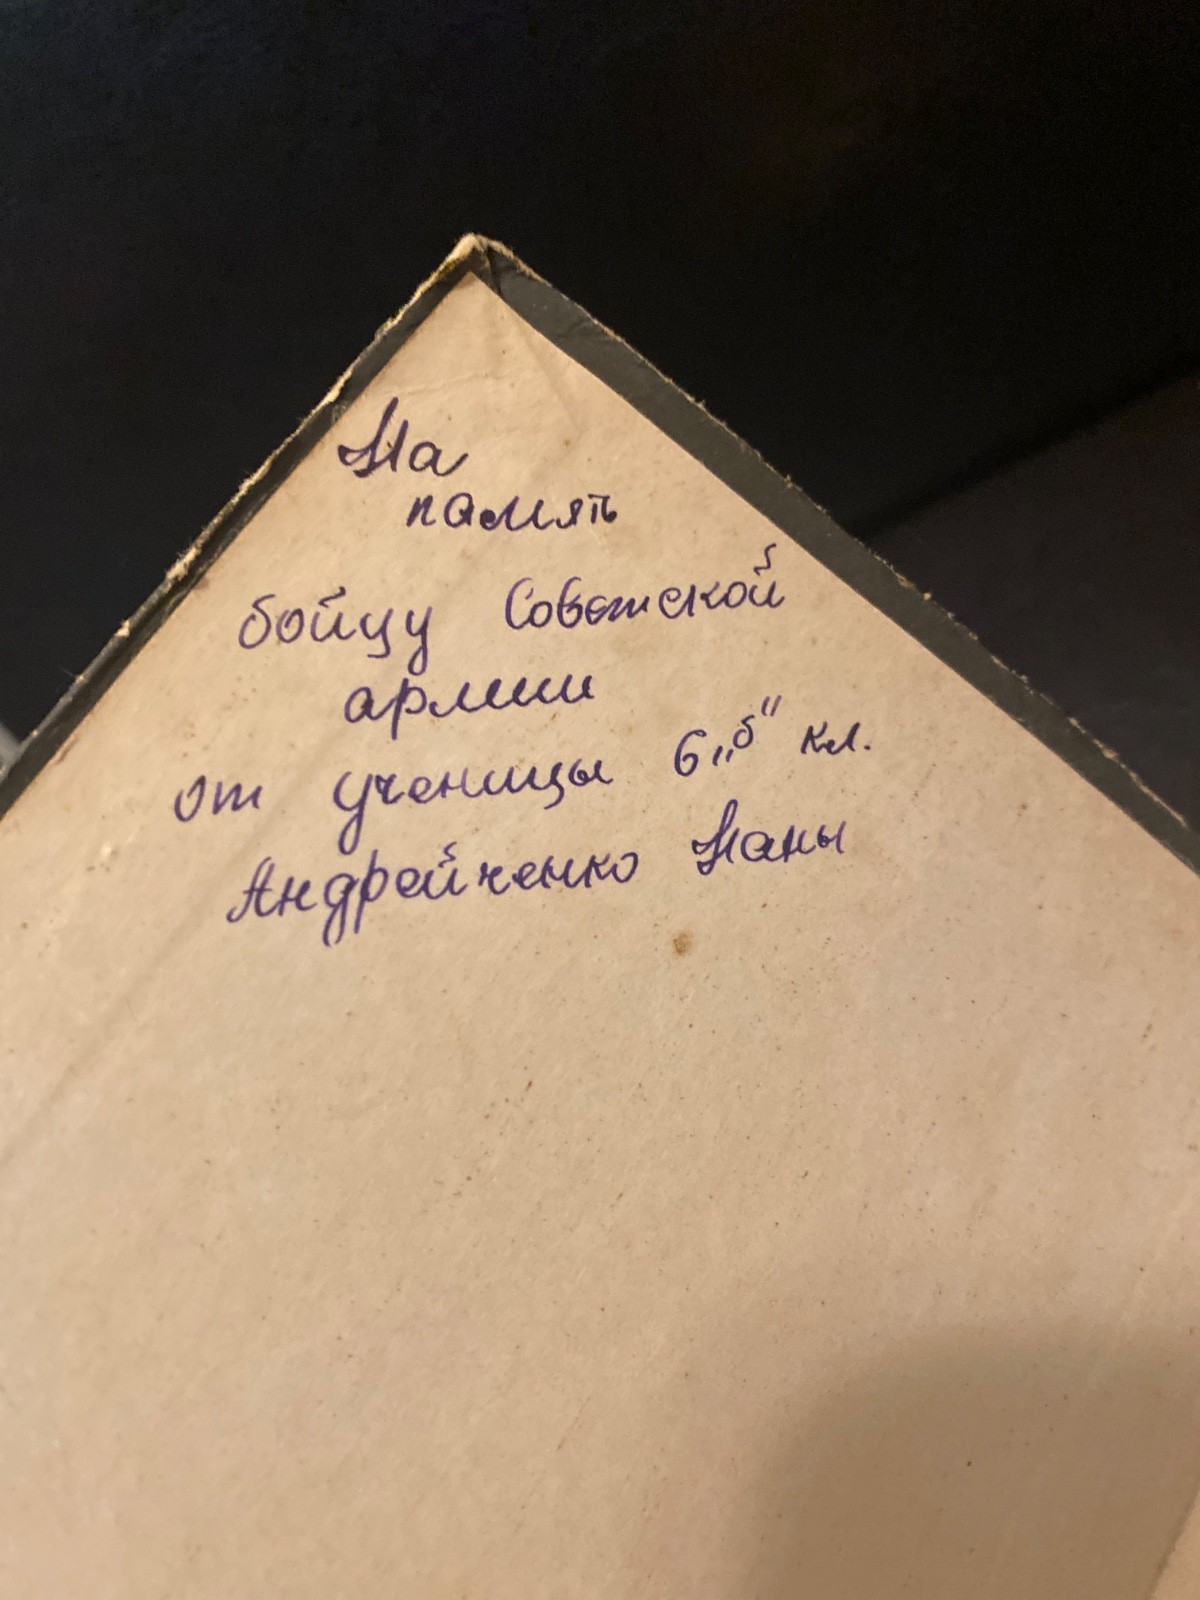 На
память
бойцу Советской
армии
от ученицы 6 „б" кл.
Андрейченко Наны